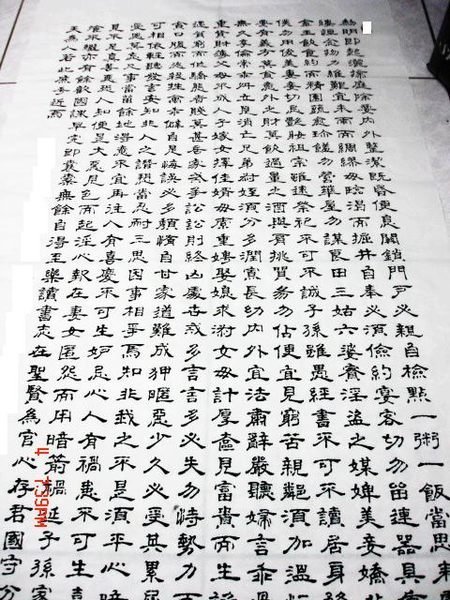 黎明即起灑掃庭除要內外整潔既昏便息關鎖門戶必親自檢點一粥一飯當思來
縷恆念物力維艱宜未雨而綢繆毋臨渴而掘井自奉必須儉約宴客切勿留連器具
金玉飲食約而精園蔬愈珍饈勿營華屋勿謀良田三姑六婆實淫盜之媒婢美妾嬌非
僕勿用俊美妻妾切忌豔妝祖宗雖遠祭祀不可不誠子孫雖愚經書不可不讀居身務
要有義方莫貪意外之財莫飲過量之酒與肩挑貿易勿佔便宜見窮苦親鄰須加溫恤
無久享倫常乖舛立見消亡兄弟叔姪須分多潤寡長幼內外宜法肅辭嚴聽婦言乖骨
重貲財薄父母不成人子嫁女擇佳婿毋索重聘娶媳求淑女毋計厚奩見富貴而生諂
遇貧窮而作驕態者賤莫甚居家戒爭訟訟則終凶處世戒多言言多必失勿恃勢力而
貪口腹而恣殺牲禽乖僻自是悔誤必多頹惰自甘家道難成狎暱惡少久必受其累屈
可相依輕聽發言安知非人之譖愬當忍耐三思因事相爭焉知非我之不是須平心暗
受恩莫忘凡事當留餘地得意不宜再往人有喜慶不可生妒忌心人有禍患不可生喜
見不是真善惡恐人知便是大惡見色而起淫心報在妻女匿怨而用暗箭禍延子孫家
飧不繼亦有餘歡國課早完即囊橐無餘自得至樂讀書志在聖賢為官心存君國守分
天為人若此庶乎近焉
4 7:39PM